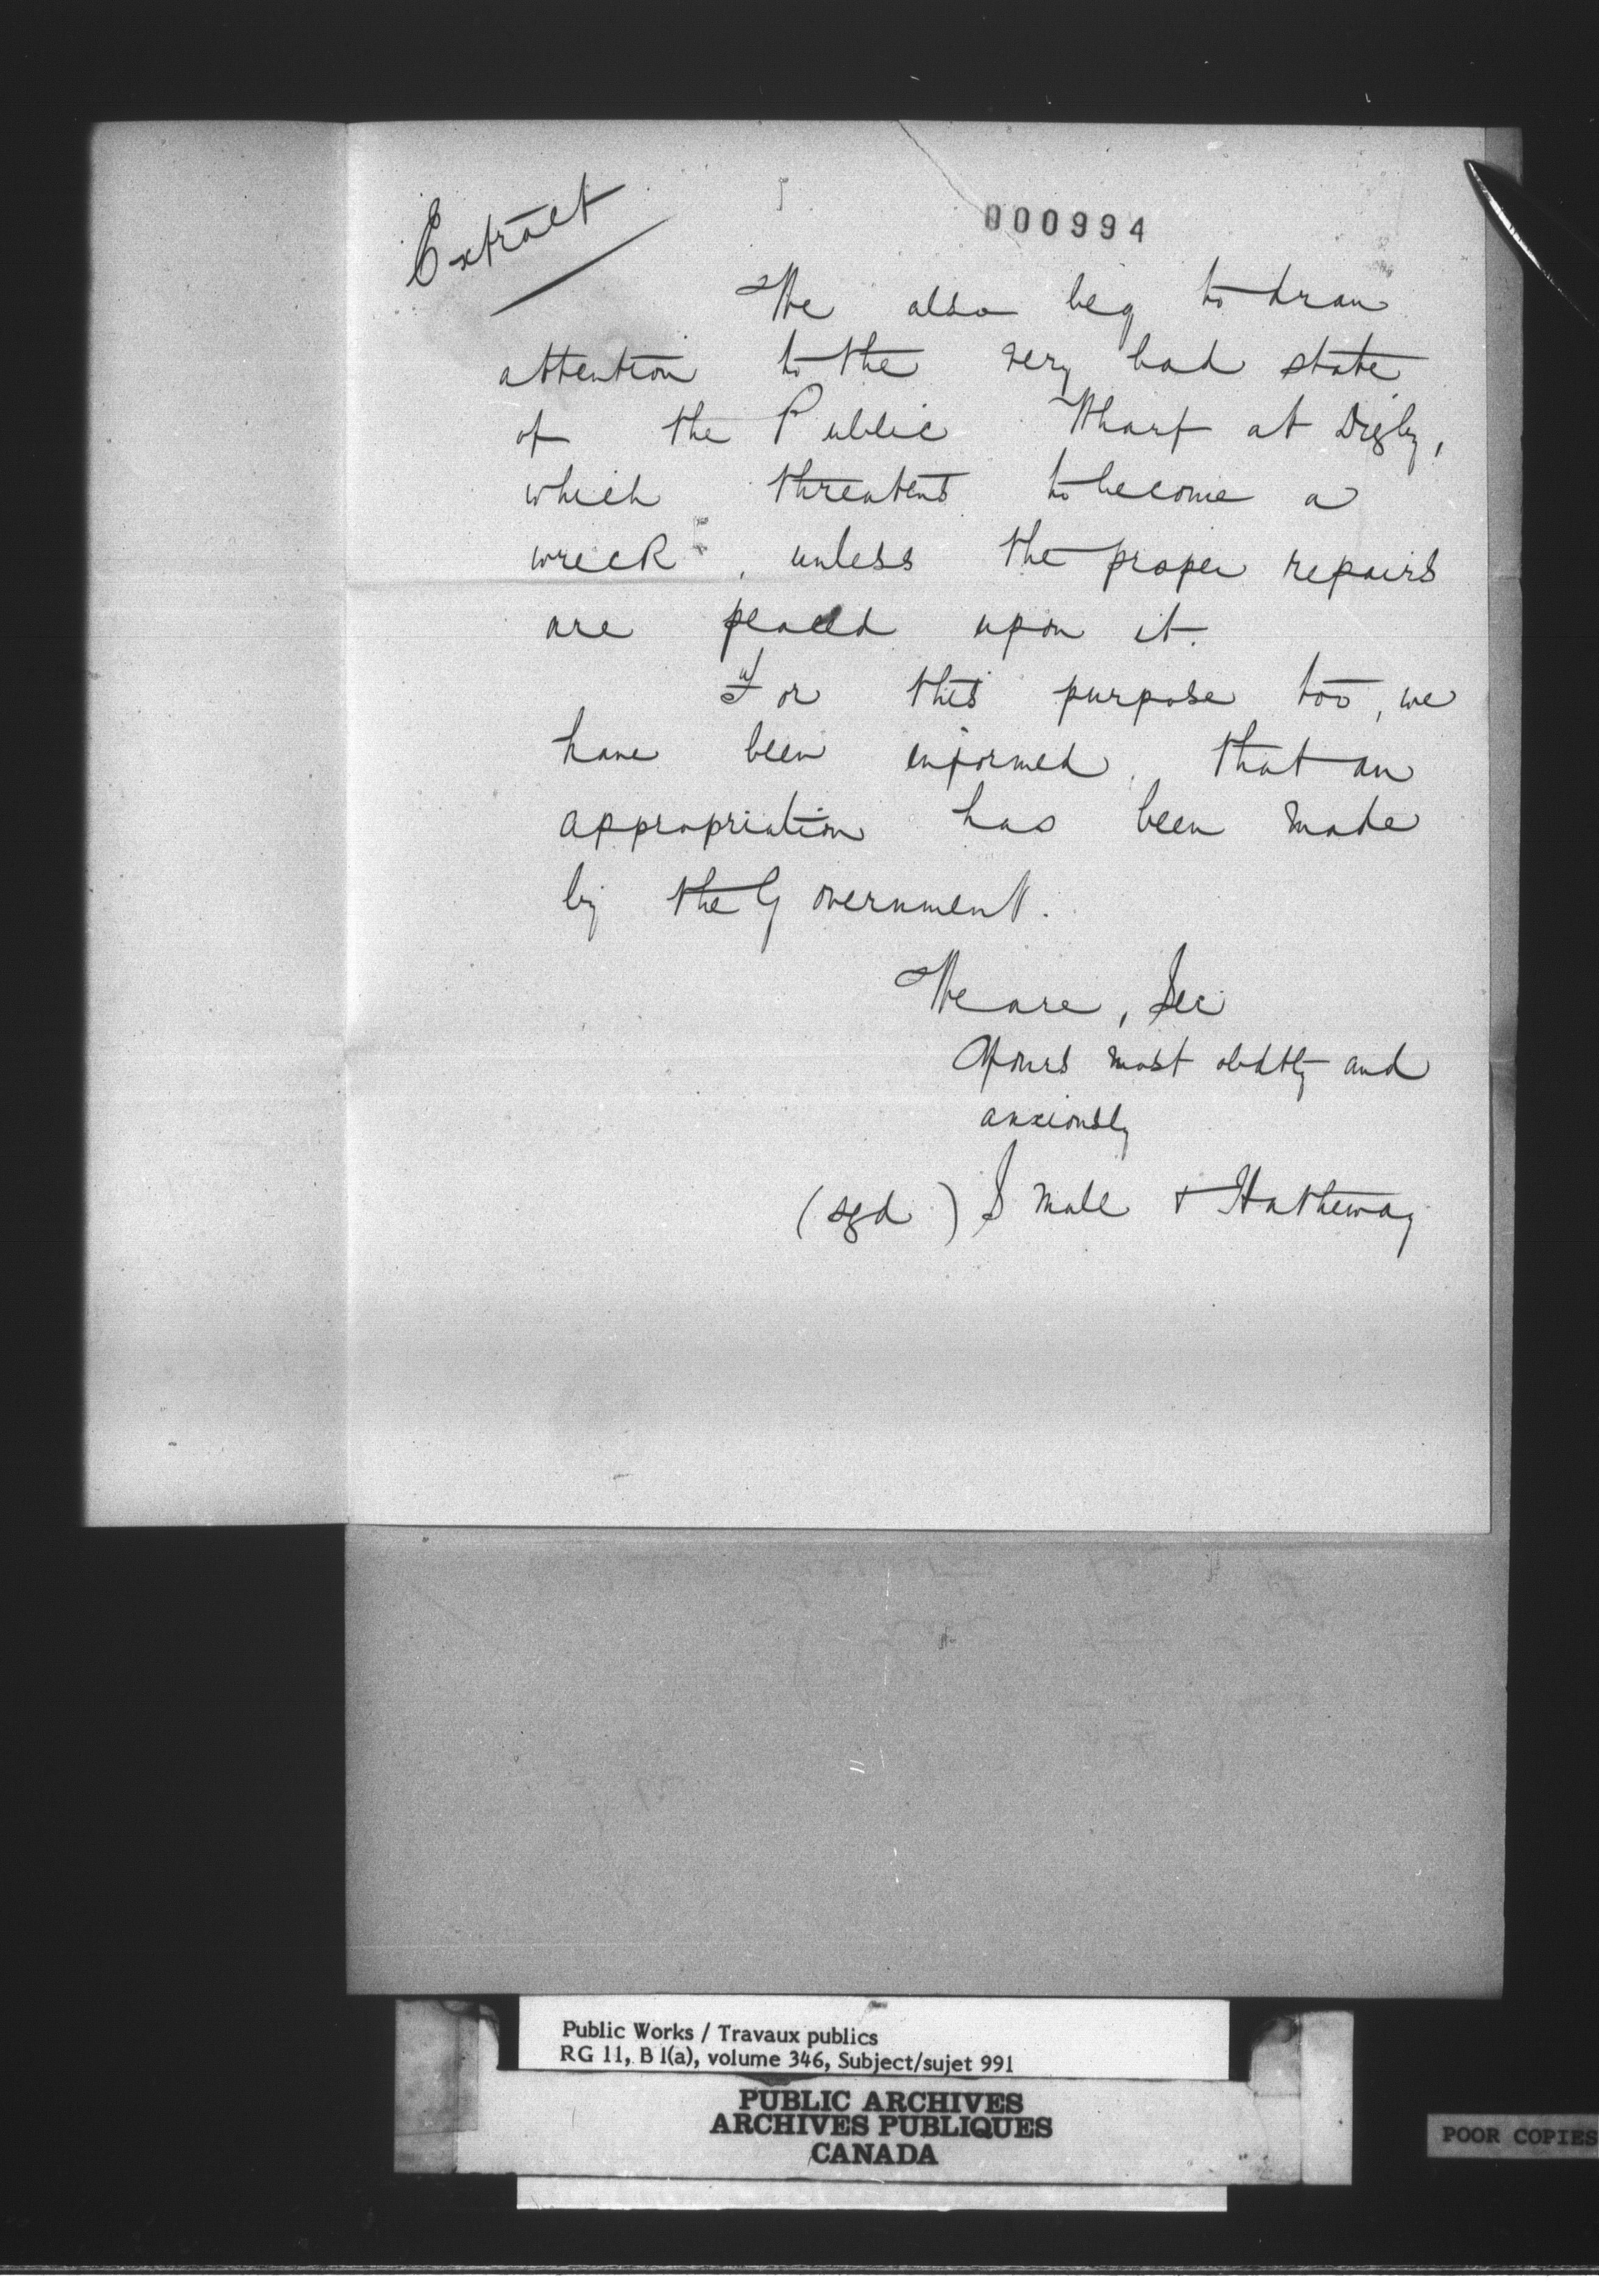 Extract
000994
We also beg to draw
attention to the very bad state
of the Public Wharf at Digby,
which threatens to become a
wreck, unless the proper repairs
are placed upon it.
For this purpose too, we
have been informed, that an
appropriation has been made
by the Government.
We are, Sir
Yours most obdtly and
anxiously
(sgd) Small & Hatheway
Public Works / Travaux publics
RG 11, B 1(a), volume 346, Subject/sujet 991
PUBLIC ARCHIVES
ARCHIVES PUBLIQUES
CANADA
POOR COPIES